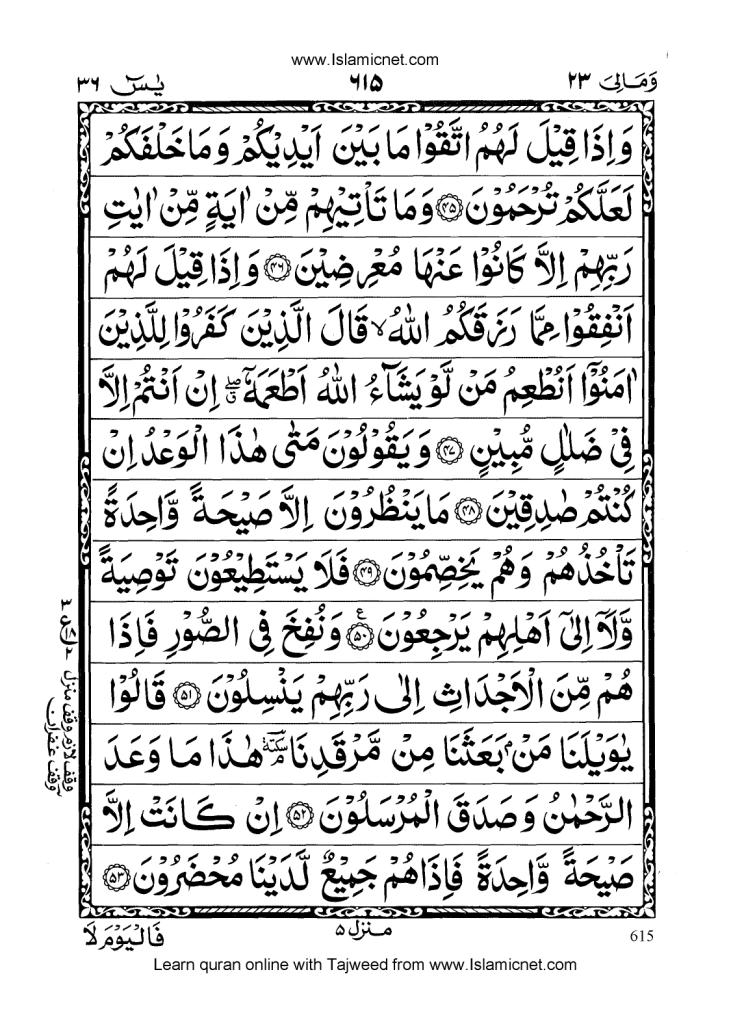 www.Islamicnet.com
وَمَالِیَ ٢٣
٦١٥
یٰسٓ ٣٦
وَاِذَا قِیْلَ لَهُمُ اتَّقُوْا مَا بَیْنَ اَیْدِیْكُمْ وَمَا خَلْفَكُمْ
لَعَلَّكُمْ تُرْحَمُوْنَ ﴿٤٥﴾ وَمَا تَاْتِیْهِمْ مِّنْ اٰیَةٍ مِّنْ اٰیٰتِ
رَبِّهِمْ اِلَّا كَانُوْا عَنْهَا مُعْرِضِیْنَ ﴿٤٦﴾ وَاِذَا قِیْلَ لَهُمْ
اَنْفِقُوْا مِمَّا رَزَقَكُمُ اللّٰهُ ۙ قَالَ الَّذِیْنَ كَفَرُوْا لِلَّذِیْنَ
اٰمَنُوْۤا اَنُطْعِمُ مَنْ لَّوْ یَشَآءُ اللّٰهُ اَطْعَمَهٗۤ ۖۗ اِنْ اَنْتُمْ اِلَّا
فِیْ ضَلٰلٍ مُّبِیْنٍ ﴿٤٧﴾ وَیَقُوْلُوْنَ مَتٰی هٰذَا الْوَعْدُ اِنْ
كُنْتُمْ صٰدِقِیْنَ ﴿٤٨﴾ مَا یَنْظُرُوْنَ اِلَّا صَیْحَةً وَّاحِدَةً
تَاْخُذُهُمْ وَهُمْ یَخِصِّمُوْنَ ﴿٤٩﴾ فَلَا یَسْتَطِیْعُوْنَ تَوْصِیَةً
وَّلَاۤ اِلٰۤی اَهْلِهِمْ یَرْجِعُوْنَ ﴿٥٠﴾ ع وَنُفِخَ فِی الصُّوْرِ فَاِذَا
هُمْ مِّنَ الْاَجْدَاثِ اِلٰی رَبِّهِمْ یَنْسِلُوْنَ ﴿٥١﴾ قَالُوْا
یٰوَیْلَنَا مَنْۢ بَعَثَنَا مِنْ مَّرْقَدِنَا ۘ سكتة هٰذَا مَا وَعَدَ
الرَّحْمٰنُ وَصَدَقَ الْمُرْسَلُوْنَ ﴿٥٢﴾ اِنْ كَانَتْ اِلَّا
صَیْحَةً وَّاحِدَةً فَاِذَا هُمْ جَمِیْعٌ لَّدَیْنَا مُحْضَرُوْنَ ﴿٥٣﴾
وقف لازم وقف منزل
وقف غفران
منزل ٥
فَالْیَوْمَ لَا
615
Learn quran online with Tajweed from www.Islamicnet.com